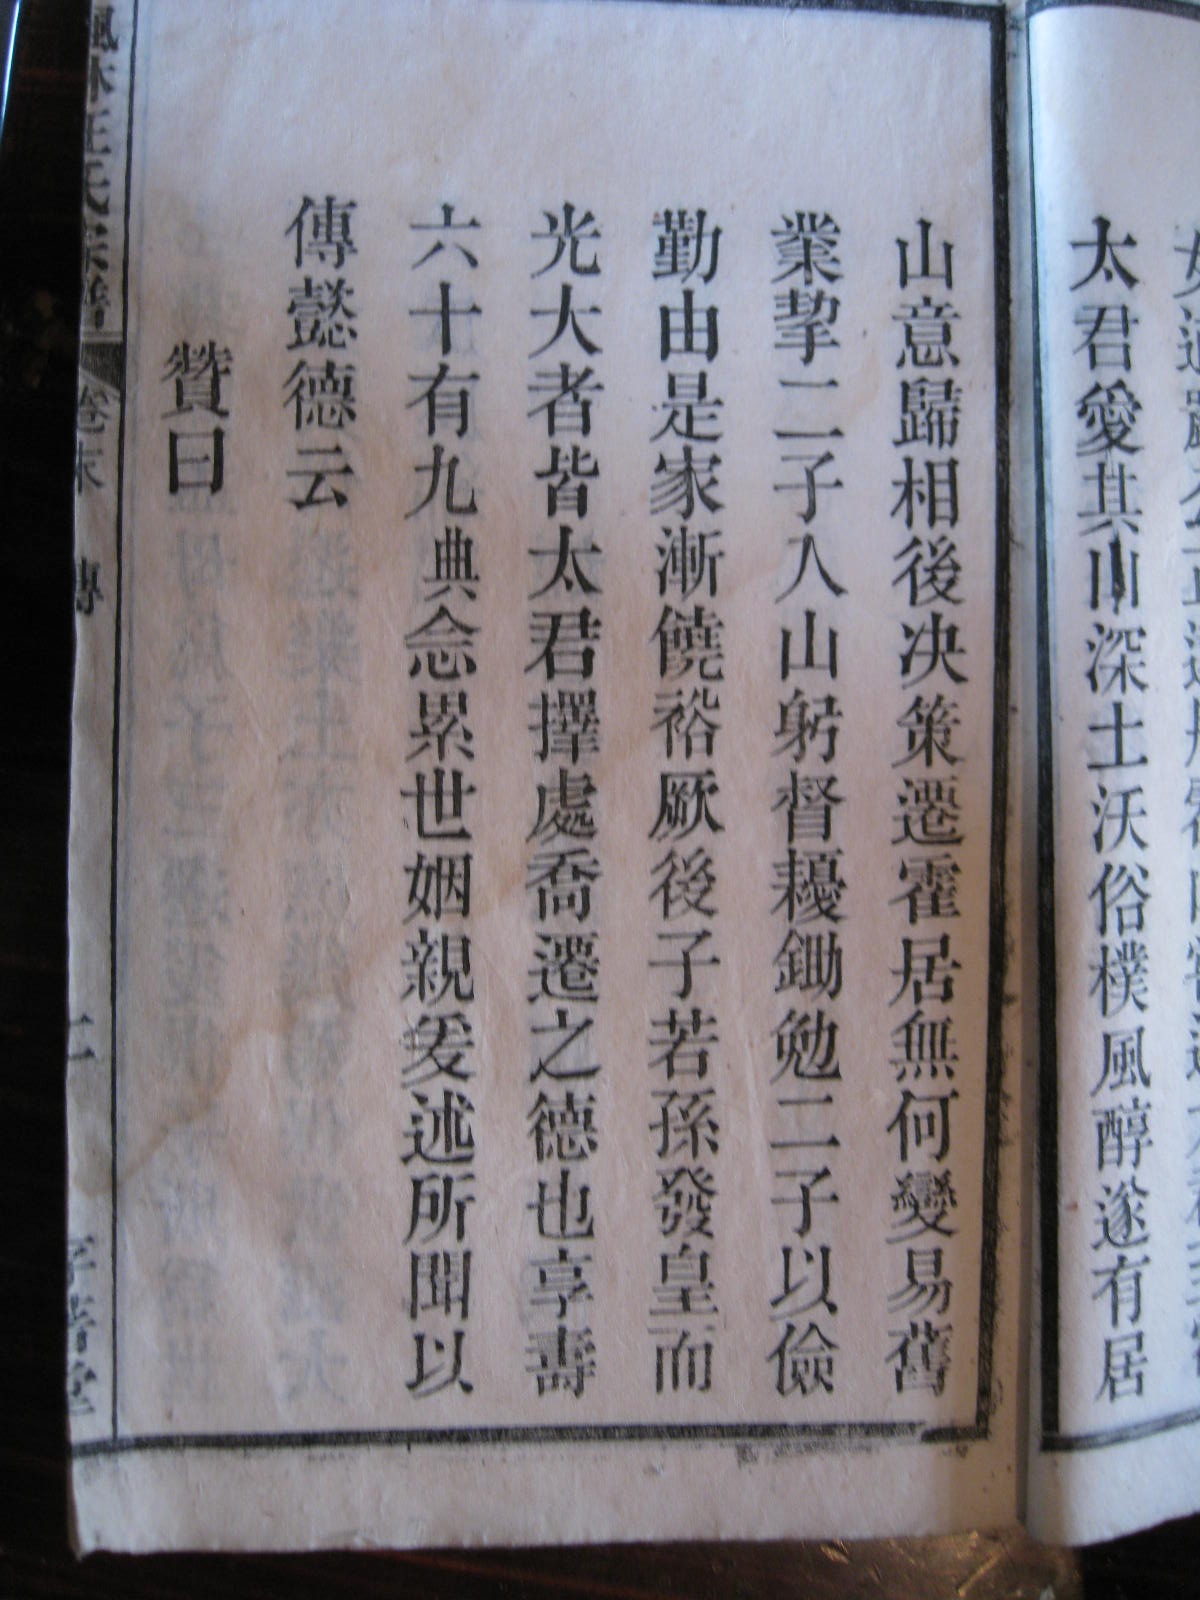 太君愛其山深土沃俗樸風醇遂有居
山意歸相後决策遷霍居無何變易舊
業挈二子入山躬督耰鋤勉二子以儉
勤由是家漸饒裕厥後子若孫發皇而
光大者皆太君擇處喬遷之德也享壽
六十有九典念累世姻親爰述所聞以
傳懿德云
贊曰
楓林王氏宗譜 卷末 傳